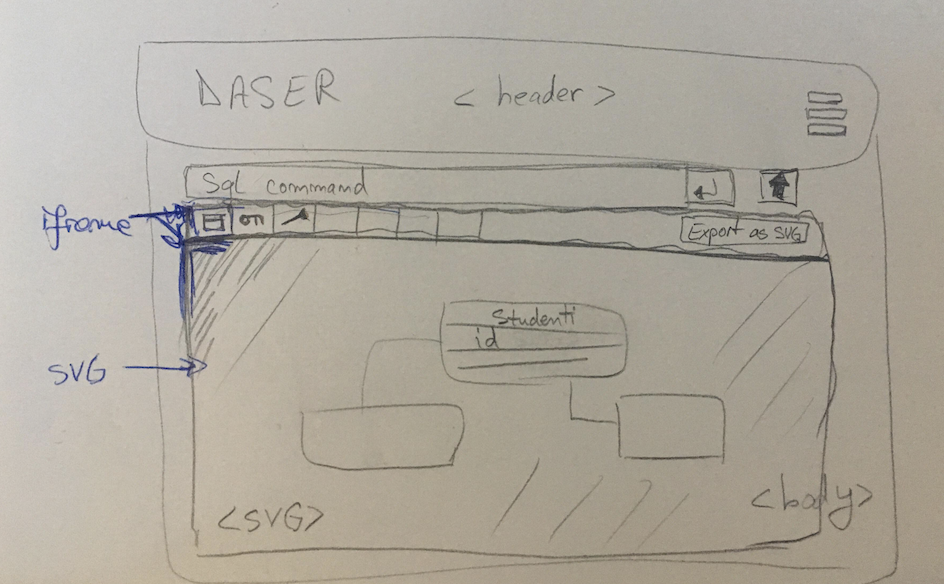 DASER <header>
Sql command
iframe
Export as SVG
Studenti
id
SVG
<body>
<SVG>